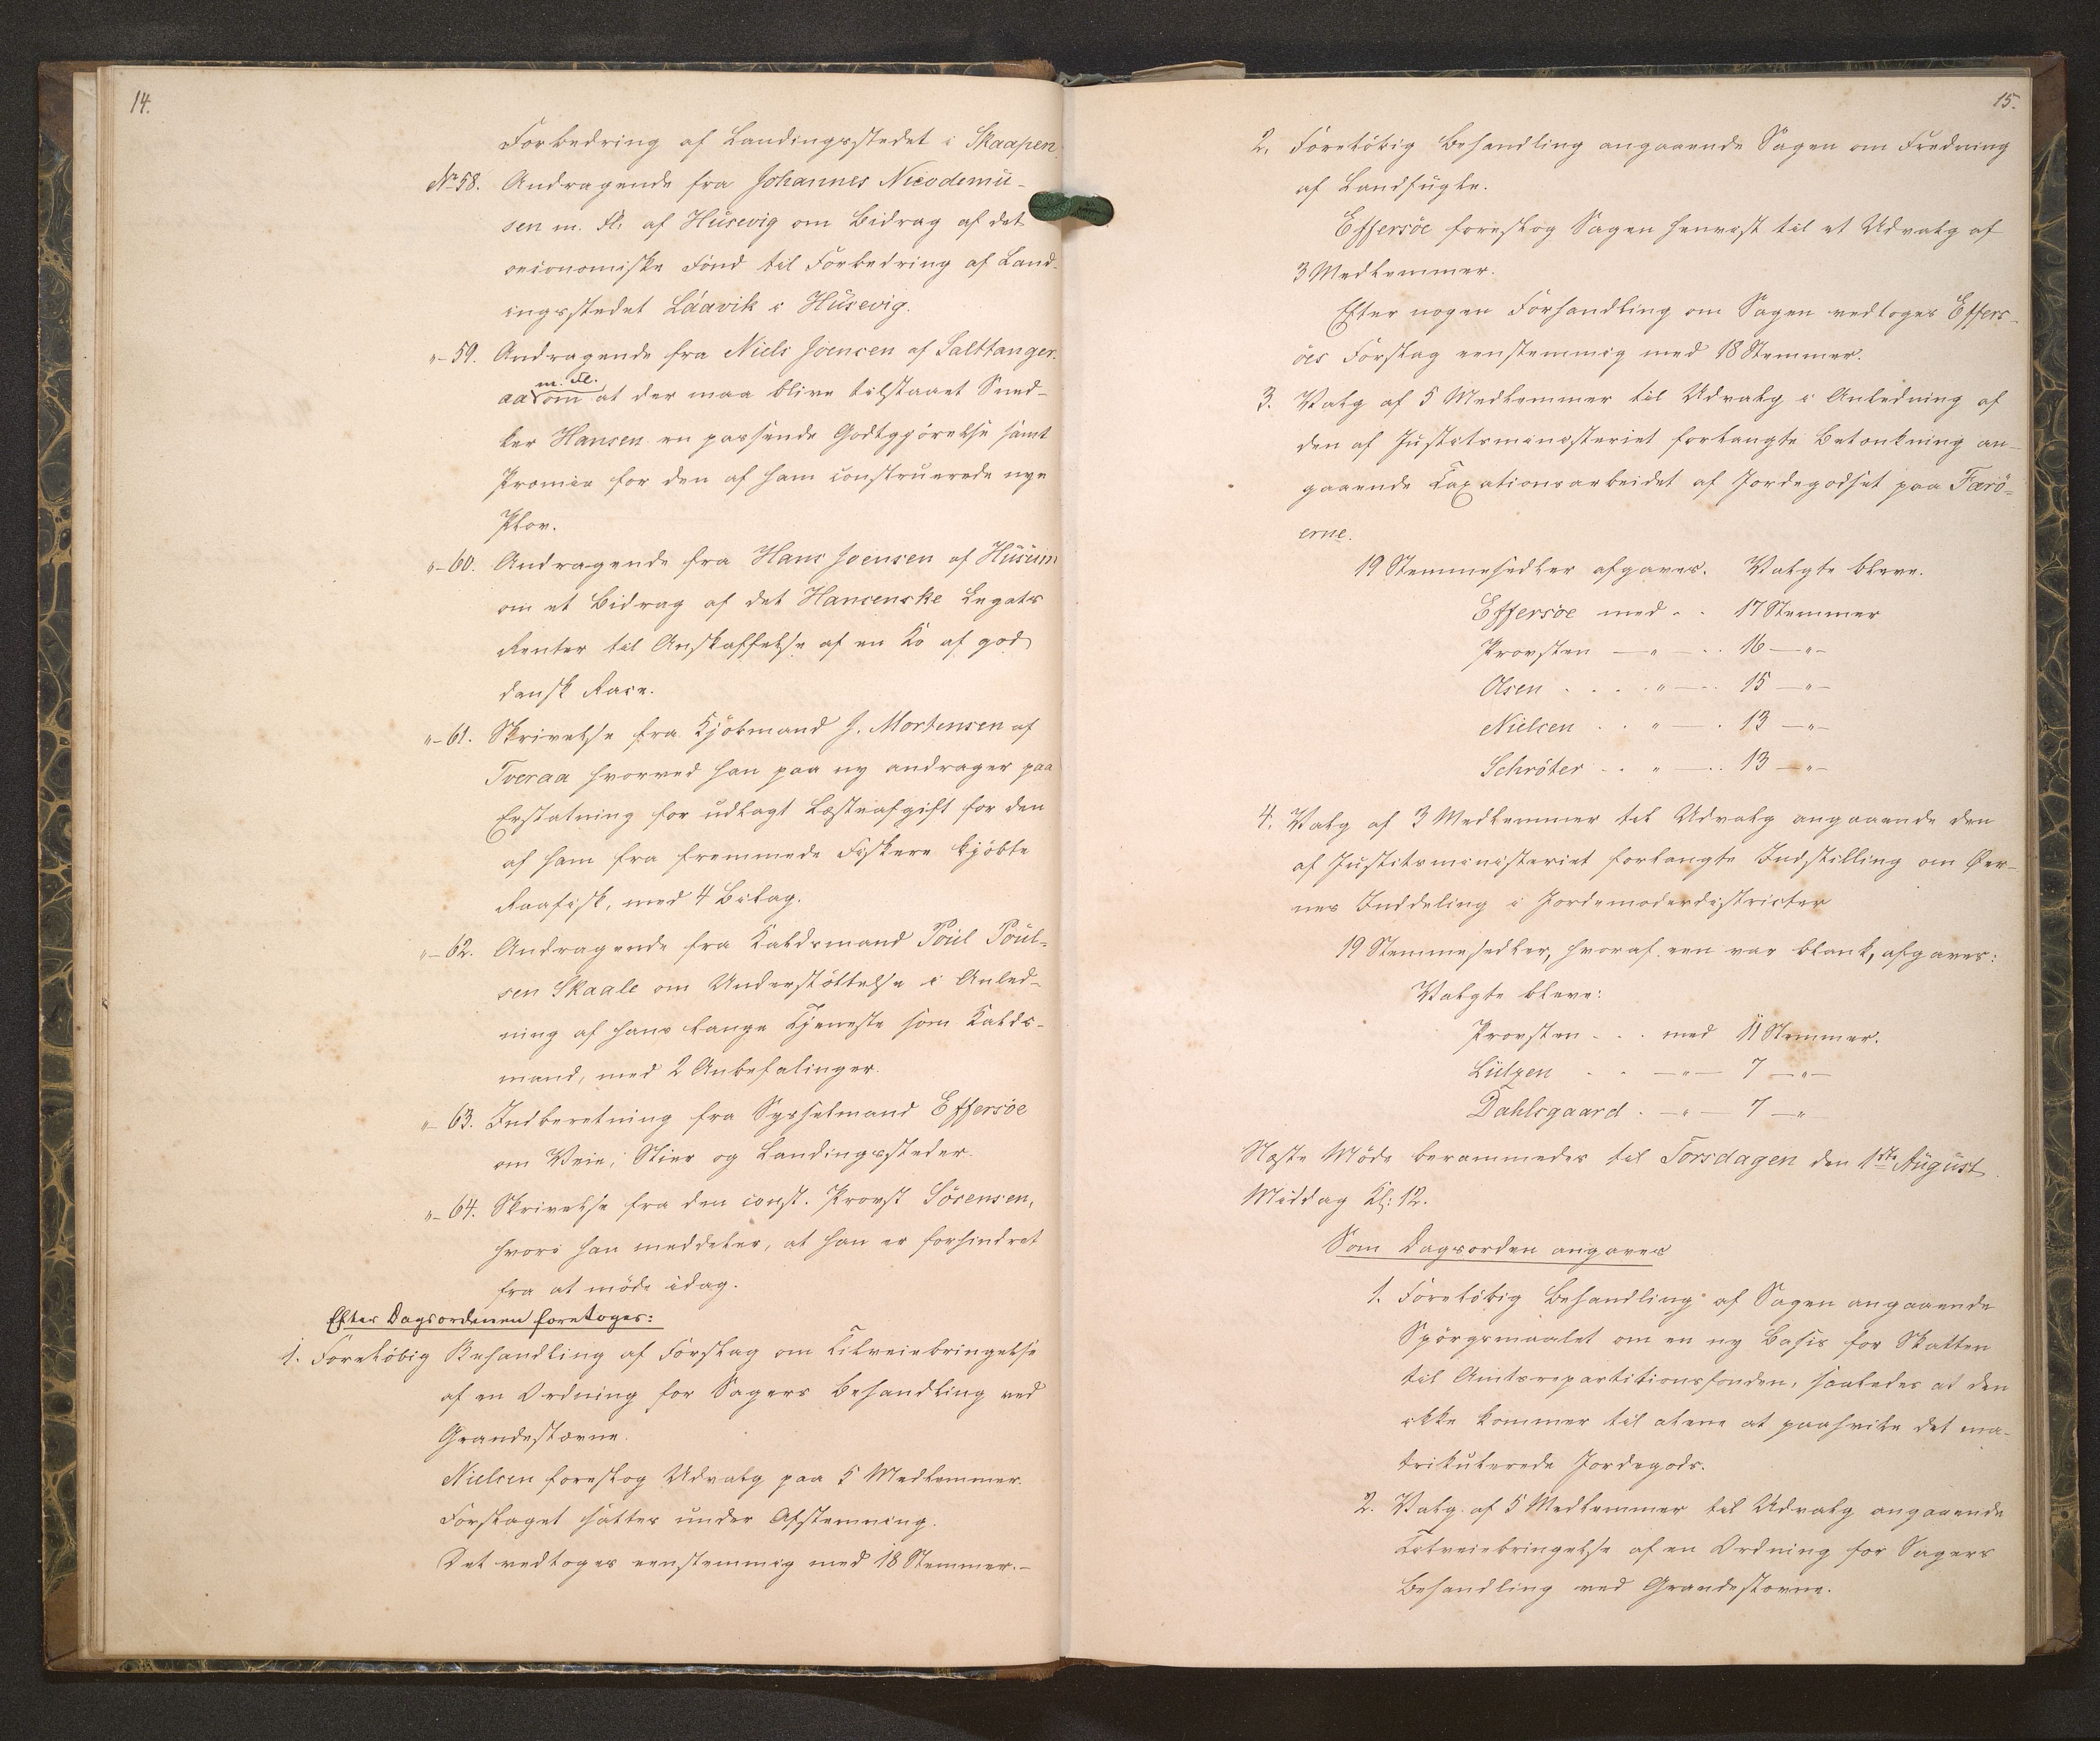 14.
Forbedring af Landingsstedet i Skaapen.
No 58. Andragende fra Johannes Nicodemu-
sen m. Fl. af Husevig om Bidrag af det
oeconomiske Fond til Forbedring af Land-
ingsstedet Láavik i Husevig.
"- 59. Andragende fra Niels Joensen af Salttanger-
m. Fl.
aa om at der maa blive tilstaaet Smed-
ker Hansen en passende Godtgjörelse samt
Præmie for den af ham construerede nye
Plov.
"- 60. Andragende fra Hans Joensen af Husum
om et Bidrag af det Hansenske Legats
Renter til Anskaffelse af en Ko af god
dansk Race.
"- 61. Skrivelse fra Kjöbmand J. Mortensen af
Tveraa hvorved han paa ny andrager paa
Erstatning for udlagt Læsteafgift for den
af ham fra fremmede Fiskere kjöbte
Raafisk, med 4 Bilag.
"- 62. Andragende fra Kaldsmand Poul Poul-
sen Skaale om Understöttelse i Anled-
ning af hans lange Tjeneste som Kalds-
mand, med 2 Anbefalinger.
"- 63. Indberetning fra Sysselmand Effersöe
om Veie, Stier og Landingssteder.
"- 64. Skrivelse fra den const. Provst Sörensen,
hvori han meddeler, at han er forhindret
fra at möde idag.
Efter Dagsordenen foretoges:
1. Forelöbig Behandling af Forslag om Tilveiebringelse
af en Ordning for Sagers Behandling ved
Grandestævne.
Nielsen foreslog Udvalg paa 5 Medlemmer.
Forslaget sattes under Afstemning.
Det vedtoges eenstemmig med 18 Stemmer.-
15.
2. Forelöbig Behandling angaaende Sagen om Fredning
af Landfugle.
Effersöe foreslog Sagen henvist til et Udvalg af
3 Medlemmer.
Efter nogen Forhandling om Sagen vedtoges Effers-
öes Forslag eenstemmig med 18 Stemmer.
3. Valg af 5 Medlemmer til Udvalg i Anledning af
den af Justitsministeriet forlangte Betænkning an-
gaaende Taxationsarbeidet af Jordegodset paa Færö-
erne.
19 Stemmesedler afgaves. Valgte bleve.
Effersöe med . . 17 Stemmer
Provsten — " — . . 16 — " —
Olsen . . . . " — . . 15 — " —
Nielsen . . " — . 13 — " —
Schröter . . " — . . 13 — " —
4. Valg af 3 Medlemmer til Udvalg angaaende den
af Justitsministeriet forlangte Indstilling om Øer-
nes Inddeling i Jordemoderdistricter
19 Stemmesedler, hvoraf een var blank, afgaves:
Valgte bleve:
Provsten . . . med 11 Stemmer.
Lützen . . — " — 7 — " —
Dahlsgaard . — " — 7 — "
Næste Möde berammedes til Torsdagen den 1ste August
Middag Kl: 12.
Som Dagsorden angaves
1. Forelöbig Behandling af Sagen angaaende
Spörgsmaalet om en ny Basis for Skatten
til Amtsrepartitionsfonden, saaledes at den
ikke kommer til alene at paahvile det ma-
trikulerede Jordegods.
2. Valg af 5 Medlemmer til Udvalg angaaende
Tilveiebringelse af en Ordning for Sagers
Behandling ved Grandestævne.